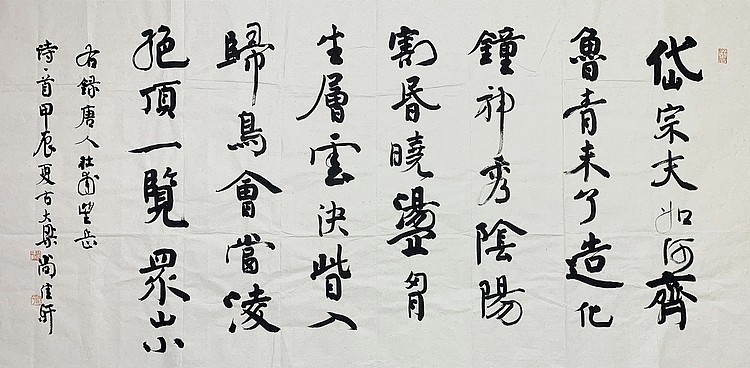 岱宗夫如何齊
魯青未了造化
鐘神秀陰陽
割昏曉盪胷
生層雲決眥入
歸鳥會當淩
絕頂一覽眾山小
右錄唐人杜甫望岳
詩一首甲辰夏古大梁尚佳昕